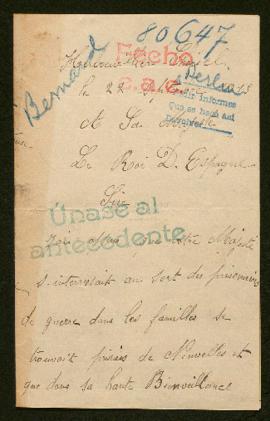 80647
Bernard
Fecho
c.a.e.
Berlin
Pedir informes
Que se hará Así
le 22
A Sa Majesté
Le Roi D. Espagne
Sire
Únase al
antecedente
Majesté
s'interessait au sort des prisonniers
de guerre dans les familles se
trouvait privées de Nouvelles et
que dans sa haute Bienveillance